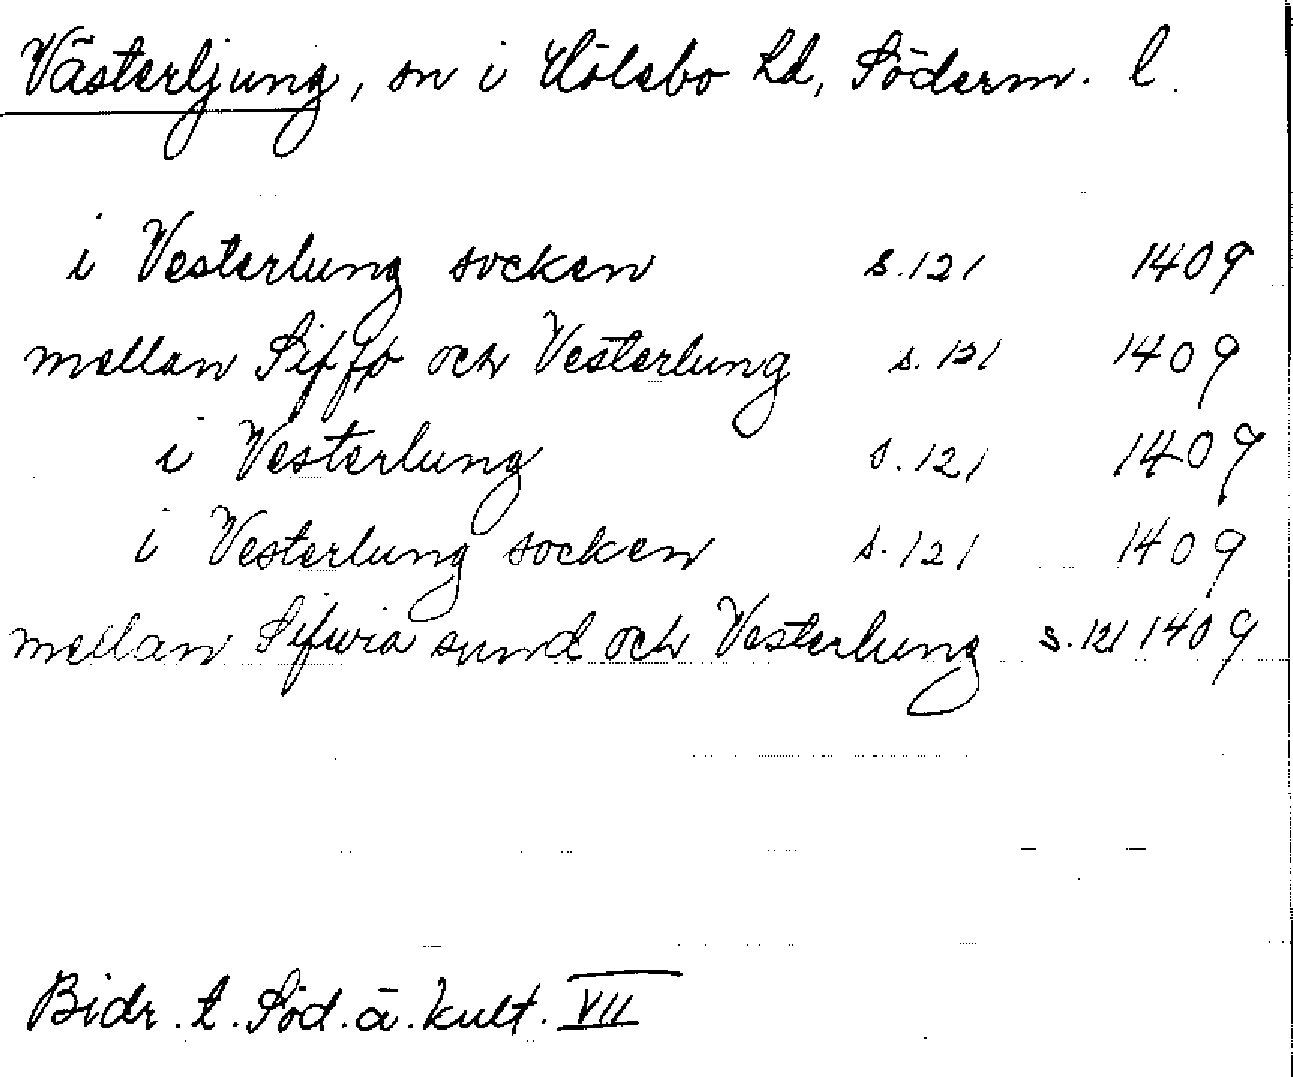 Västerljung, sn i Hölebo hd, Söderm. l.
i Vesterlung socken s. 121 1409
mellan Siffjo och Vesterlung s. 121 1409
i Vesterlung s. 121 1409
i Vesterlung socken s. 121 1409
mellan Sifwia sund och Vesterlung s. 121 1409
Bidr. t. Söd. ä. kult. VII